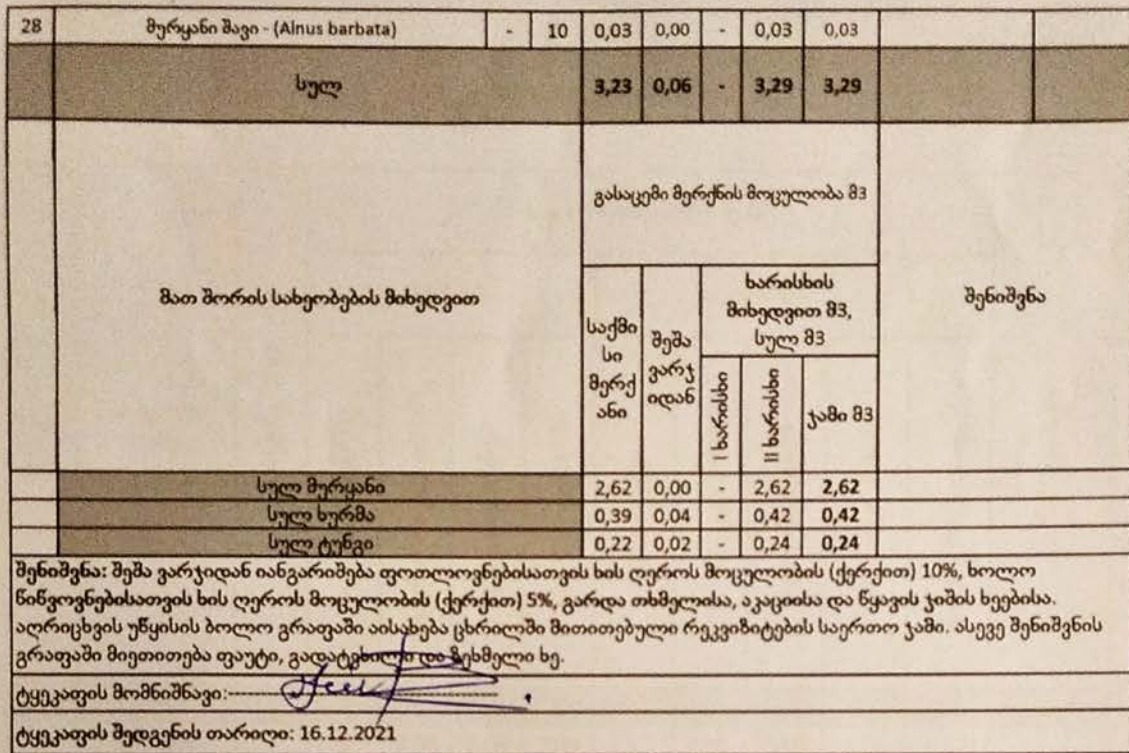 28 მურყანი შავი - (Alnus barbata) - 10 0,03 0,00 - 0,03 0,03
სულ 3,23 0,06 - 3,29 3,29
მათ შორის სახეობების მიხედვით
გასაცემი მერქნის მოცულობა მ3
შენიშვნა
საქმი
სი
მერქ
ანი
შეშა
ვარჯ
იდან
ხარისხის
მიხედვით მ3,
სულ მ3
I ხარისხი
II ხარისხი
ჯამი მ3
სულ მურყანი 2,62 0,00 - 2,62 2,62
სულ ხურმა 0,39 0,04 - 0,42 0,42
სულ ტუნგი 0,22 0,02 - 0,24 0,24
შენიშვნა: შეშა ვარჯიდან იანგარიშება ფოთლოვნებისათვის ხის ღეროს მოცულობის (ქერქით) 10%, ხოლო
წიწვოვნებისათვის ხის ღეროს მოცულობის (ქერქით) 5%, გარდა თხმელისა, აკაციისა და წყავის ჯიშის ხეებისა.
აღრიცხვის უწყისის ბოლო გრაფაში აისახება ცხრილში მითითებული რეკვიზიტების საერთო ჯამი. ასევე შენიშვნის
გრაფაში მიეთითება ფაუტი, გადატეხილი და ზეხმელი ხე.
ტყეკაფის მომნიშნავი:
ტყეკაფის შედგენის თარიღი: 16.12.2021